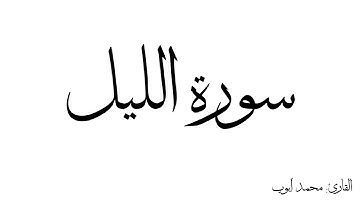 سورة الليل
القارئ: محمد أيوب